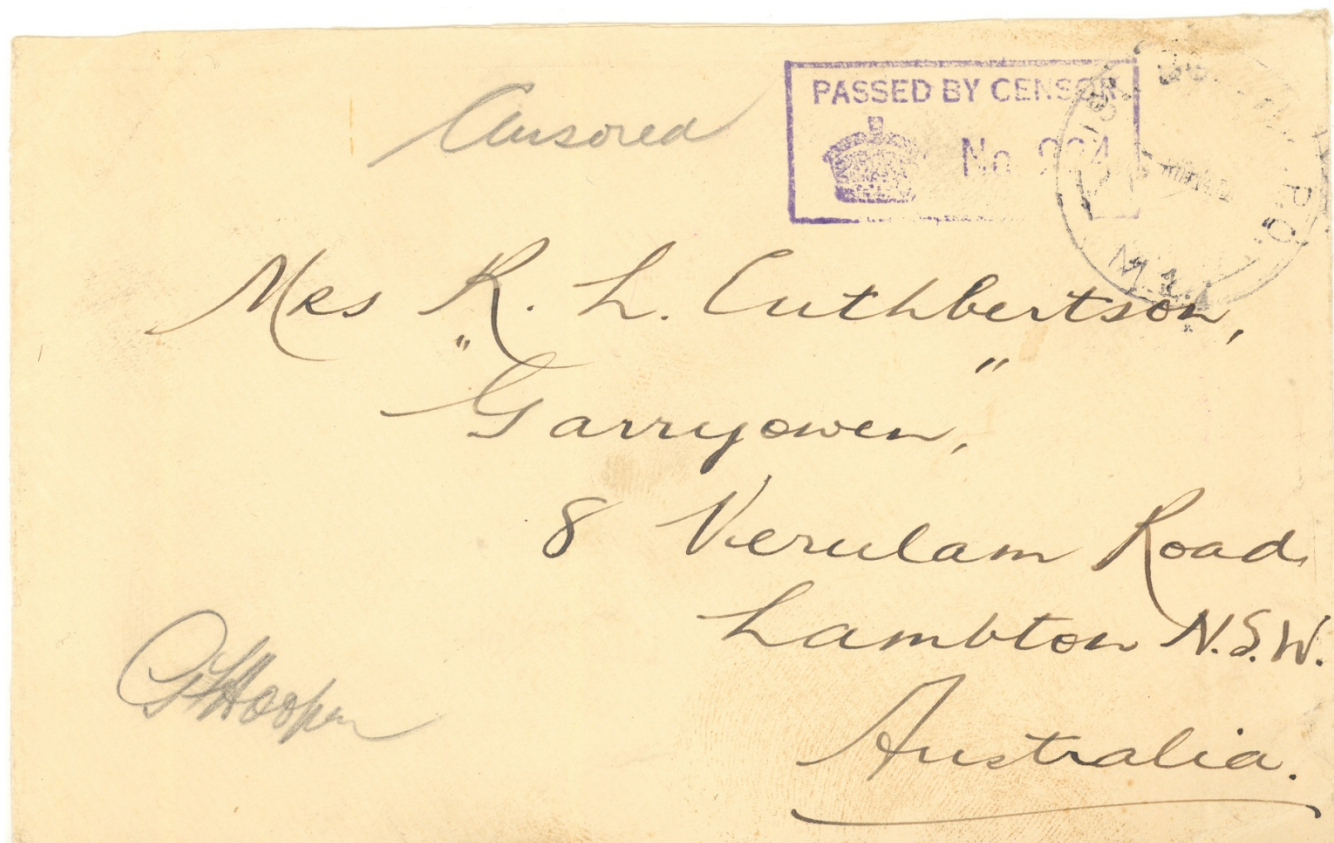 Censored
PASSED BY CENSOR
No
P.O.
Mrs R. L. Cuthbertson,
"Garryowen,"
8 Verulam Road
Lambton N.S.W.
Hooper
Australia.